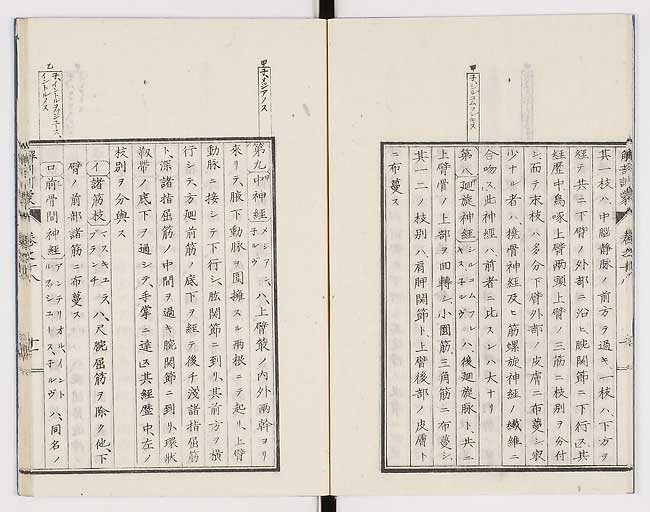 甲 子、シルコムフレキス
其一枝ハ中腦静脉ノ前方ヲ過キ、一枝ハ下方ヲ
経テ共ニ下臂ノ外部ニ沿ヒ腕關節ニ下行ス其
経歴中烏喙上臂両頭上臂ノ三筋ニ枝別ヲ分付
シ、而テ末枝ハ多分下臂外部ノ皮膚ニ布蔓シ
少ナル者ハ撓骨神経及ヒ筋螺旋神経ノ纎維ニ
合吻ス此神経ハ前者ニ比スレハ大ナリ
第八廻旋神経 シルコムフレキス、子ルヴ ハ、後廻旋脉ト、共ニ
上臂骨ノ上部ヲ回轉シ、小圓筋三角筋ニ布蔓シ、
其一二ノ枝別ハ、肩胛関節ト、上臂後部ノ皮膚ト
ニ布蔓ス
甲 子、メジアノス
乙 子、イントルヲッシユース、イントルノス
第九中神経 メジアン、子ルヴ ハ、上臂叢ノ内外両幹ヨリ
來リテ、腋下動脉ヲ圍擁スル両根ニテ起リ、上臂
動脉ニ接シテ下行シ、肱関節ニ到リ、其前方ヲ横
行シテ、方廻前筋ノ底下ヲ経テ後チ淺諸指屈筋
ト、深諸指屈筋ノ中間ヲ過キ腕関節ニ到リ、環状
靱帶ノ底下ヲ過シテ、手掌ニ達ス其経歴中左ノ
枝別ヲ分與ス
イ 諸筋枝 マスキュラル、ブランチ ハ、尺腕屈筋ヲ除ク他、下
臂ノ前部諸筋ニ布蔓ス
ロ 前骨間神経 アンテリオル、イントルヲスシユース、子ルヴ ハ、同名ノ